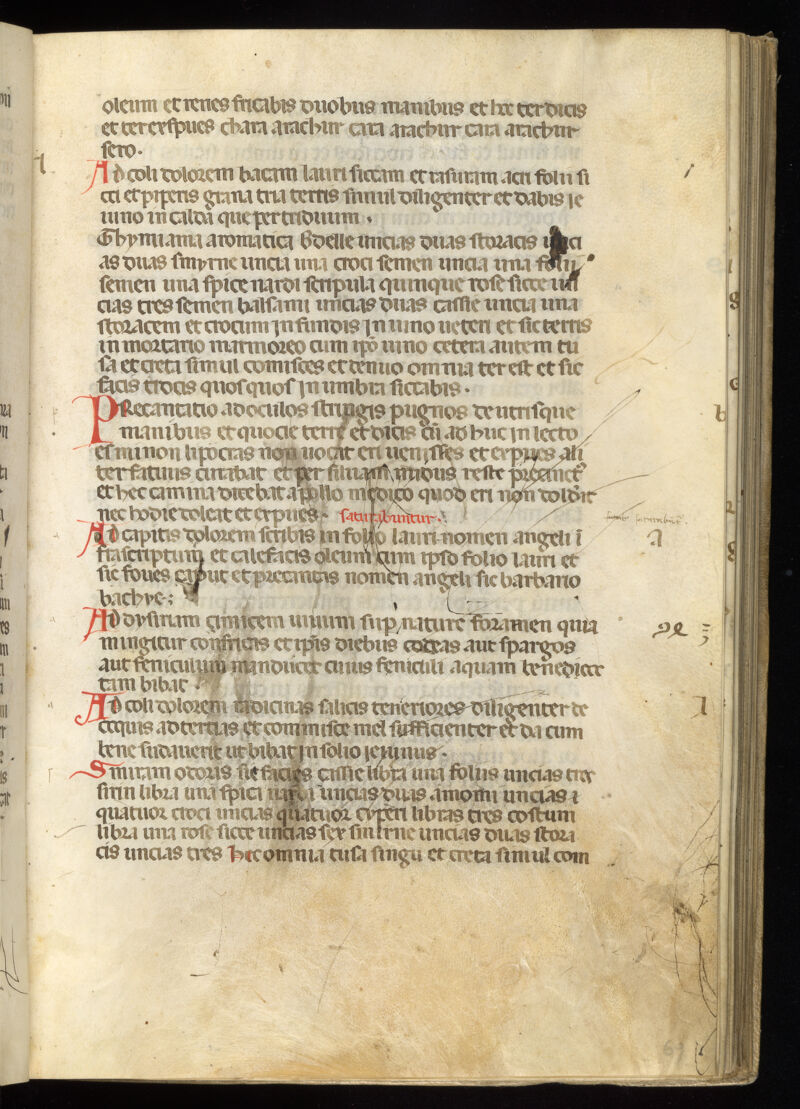 oleum et renes fricabis duobus manibus et hec ter dicis
et ter exspues chara arachnir cara arachnir cara arachnir
sero.
Ad coli dolorem bacam lauri siccam et rasuram acri folii si
cci et piperis grana tria terris simul diligenter et dabis ie
iuno in calda que per triduum.
Thymiama aromatica bdelle uncias duas storacis unci
as duas smyrne uncia una croci semen uncia una folii
semen una spice nardi scripula quinque rose sicce un
cias tres semen balsami uncias duas cassie uncia una
storacem et crocum infundis in uino ueteri et sic terris
in mortario marmoreo cum ipo uino cetera autem tu
sa et creta simul comisces et denuo omnia ter est et sic
facis trocis quosquos in umbra siccabis.
Precantatio ad oculos stringis pugnos de utrisque
manibus et quocie terre et dicis cu adhuc in lecto
es minon lipocras non uocat eri uenisses et expues ali
ter fatuus curabat et per siluam midus reste precinct
et hec carmina dicebat apollo medico quod eri non doluit
nec hodie doleat et expues. saturabuntur.
Ad capitis dolorem scribis in folio lauri nomen angeli i
frascriptum et calefacis oleum cum ipso folio lauri et
sic foues caput et precantas nomen angeli sic barbario
bachye:
Ad dysuriam cimicem uiuum sup nature foramen quia
mingitur confricas et ipis diebus coreas aut spargos
aut feniculum manducet cuius feniculi aquam benedicer
tam bibat.
Ad coli dolorem radicinas salicis teneriores diligenter de
coquis ad tertias et commisce mel sufficienter et da cum
bene sudauerit ut bibat in solio ieiunus.
Smiram odoris sic facies cassie libra una folus uncias trex
sirin libra una spici nardi uncias duas amomi uncias i
quatuor croci uncias quatuor cyperi libras tres costum
libra una rose sicce uncias sex smirne uncias duas stora
cis uncias tres hec omnia tusa singu et creta simul com